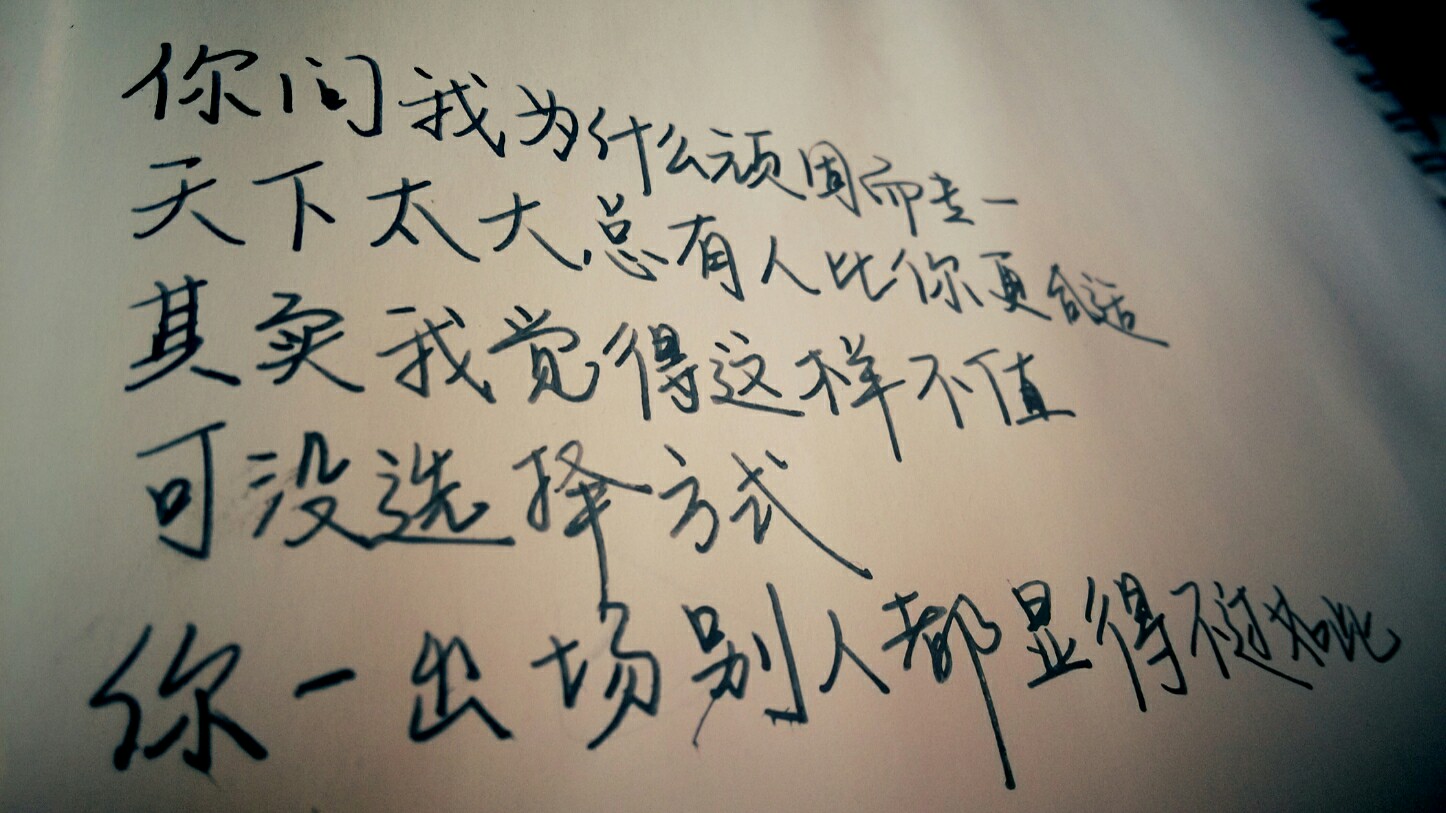 你问我为什么顽固而专一
天下太大总有人比你更合适
其实我觉得这样不值
可没选择方式
你一出场别人都显得不过如此